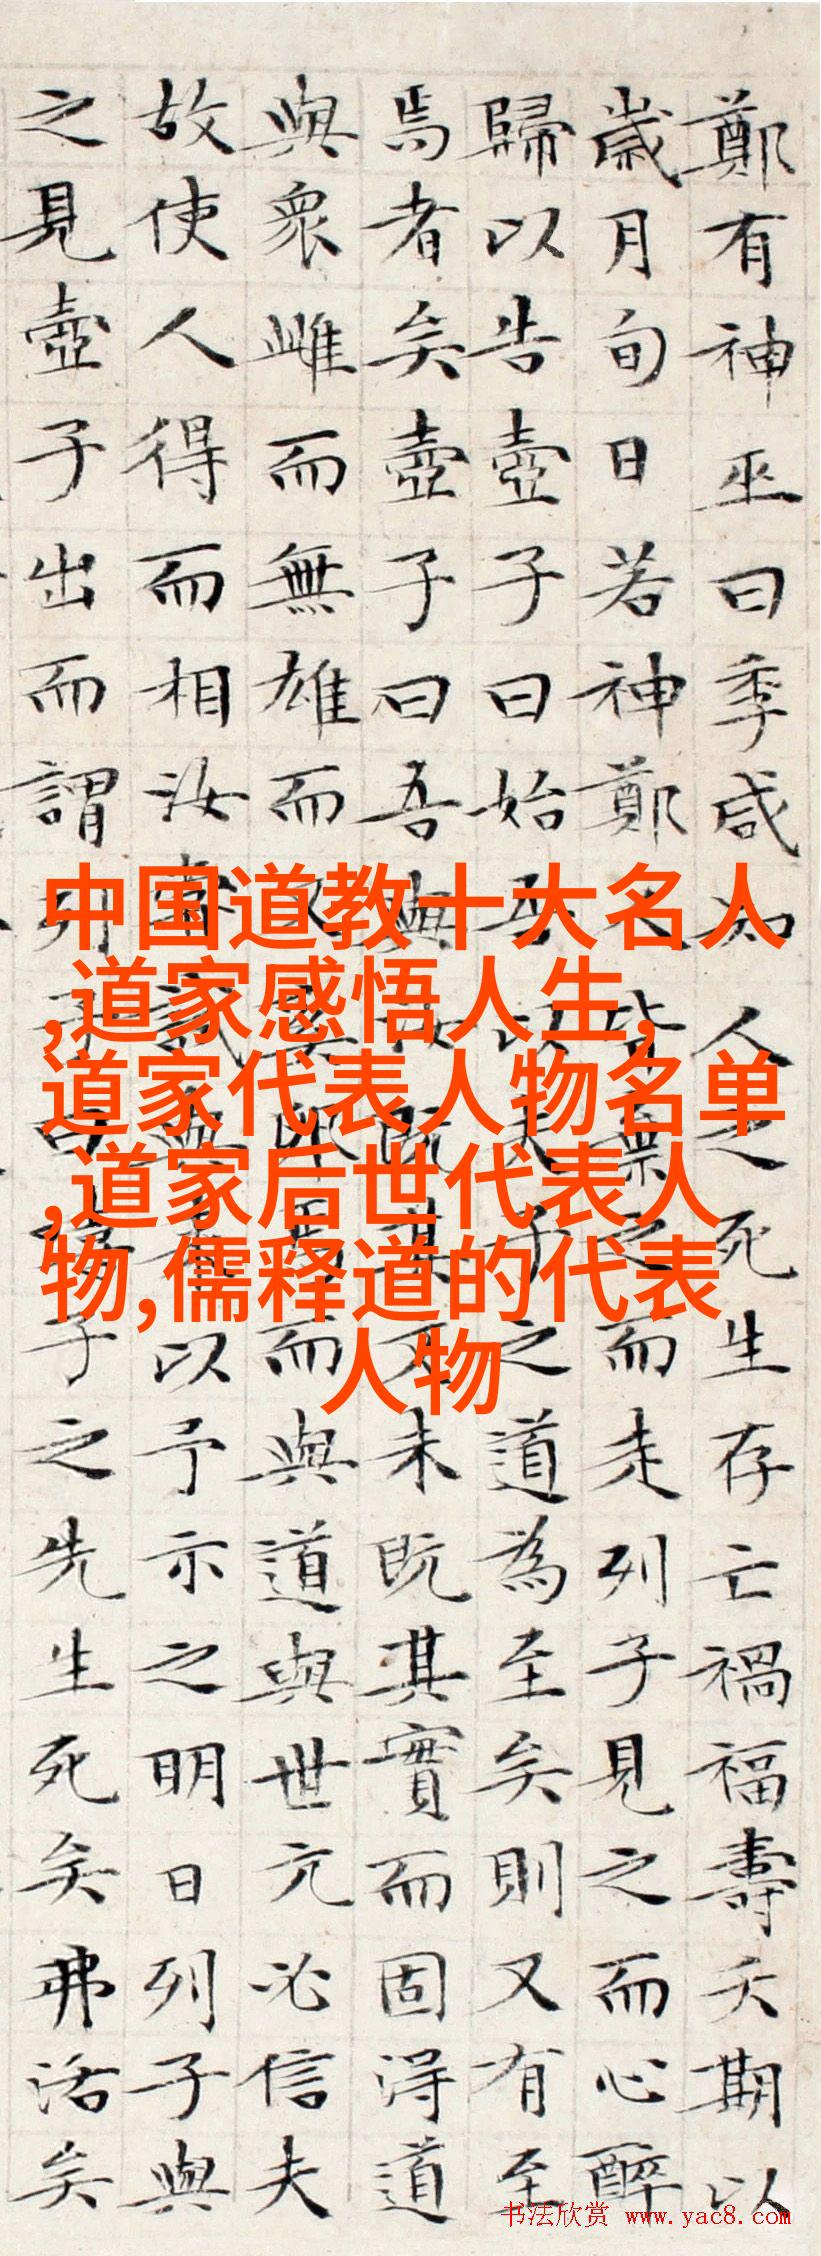 鄭有神巫曰季咸知人之死生存亡禍福壽夭期以
歲月旬日若神鄭人皆棄之而走列子見之而心醉
歸以告壺子曰始吾以夫子之道為至矣則又有至
焉者矣壺子曰吾與汝既其文未既其實而固得道
與衆雌而無雄而又奚卵焉而與道與世亢必信夫
故使人得而相汝嘗試與來以予示之明日列子與
之見壺子出而謂列子曰嘻子之先生死矣弗活矣
中国道教十大名人
,道家感悟人生,
道家代表人物名单
,道家后世代表人
物,儒释道的代表
人物
书法欣赏 www.yac8.com